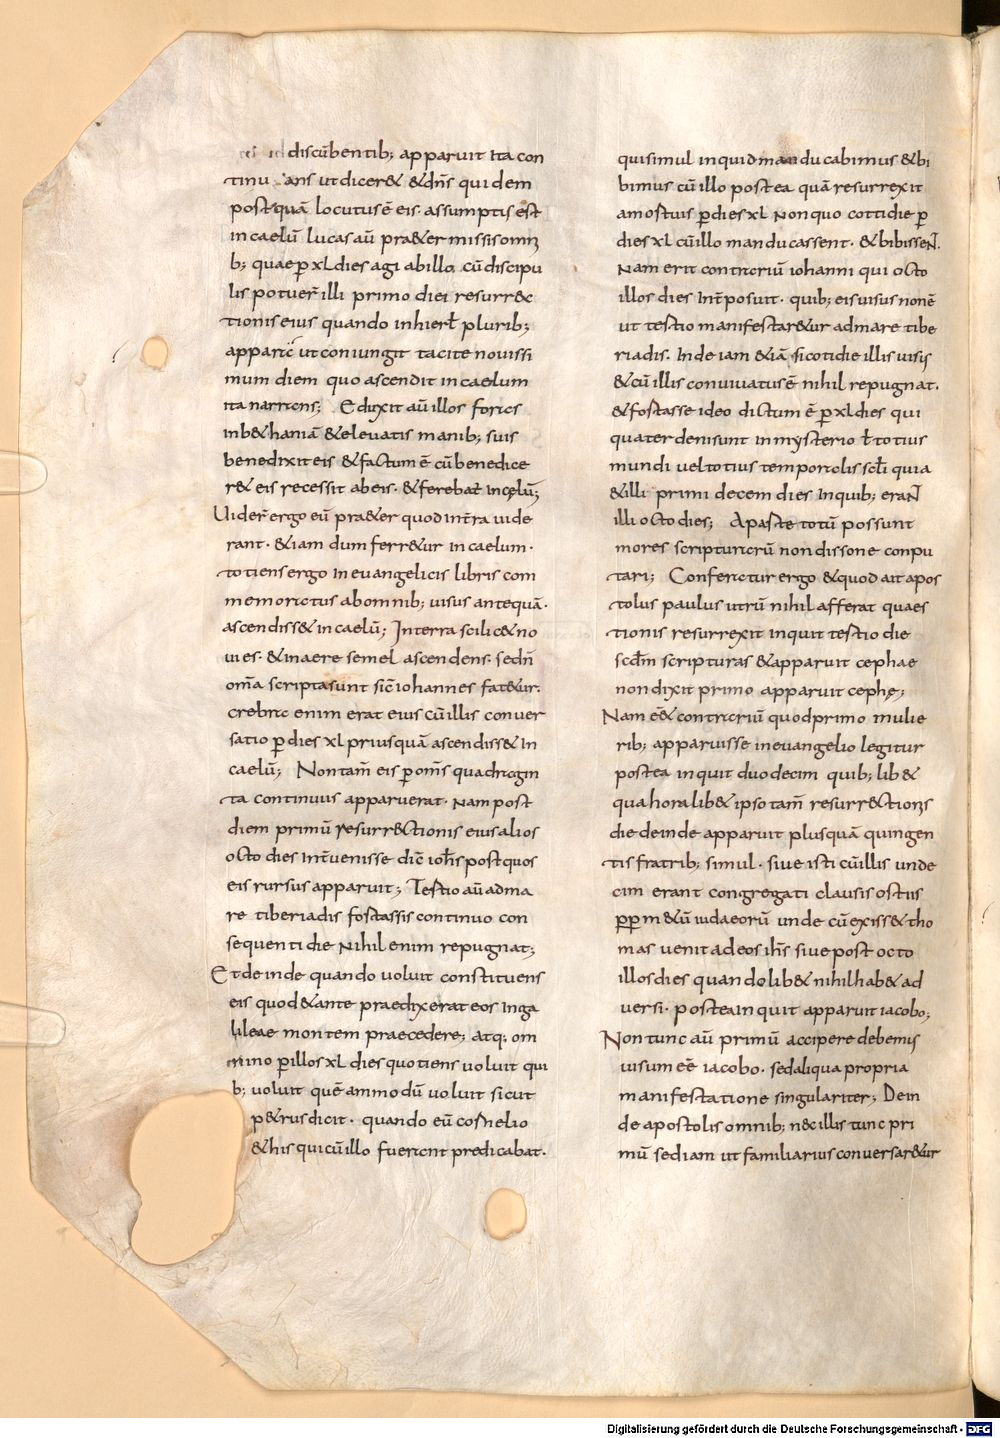 discūbentib; apparuit ita con
tinuans ut dicer& &dn̄s quidem
postquā locutus ē eis assumptis est
in caelū lucas aū pra&ermissis omnı
b; quae p̄ xl dies agi ab illo cū discipu
lis potuer̄ illi primo diei resurrec
tionis eius quando in hierł plurib;
apparuit ut coniungit tacite novissi
mum diem quo ascendit in caelum
ita narrans; Eduxit aū illos foras
in b&haniā & elevatis manib; suis
benedixit eis & factum ē cū benedice
r& eis recessit ab eis · & ferebat̄ in cęlū;
Uider̄ ergo eū pra&er quod int̄ra uide
rant · & iam dum ferr&ur in caelum ·
totiens ergo in euangelicis libris com
memoratus ab omnib; uisus antequā ·
ascendiss& in caelū; In terra scilic& no
uies · & in aere semel ascendens · sed n̄
om̄a scripta sunt sic̄ iohannes fat&ur.
crebra enim erat eius cū illis conuer
satio p̄ dies xl priusquā ascendiss& in
caelū; Non tam̄ eis p̄ om̄s quadragin
ta continuus apparuerat · Nam post
diem primū resurr&ctionis eius alios
octo dies int̄uenisse dic̄ ioh̄s post quos
eis rursus apparuit; Tertio aū ad ma
re tiberiadis fortassis continuo con
sequenti die Nihil enim repugnat;
Et deinde quando uoluit constituens
eis quod & ante praedixerat eos in ga
lileae montem praecedere; atq; om
nino p̄ illos xl dies quotiens uoluit qui
b; uoluit quē ammodū uoluit sicut
p&rus dicit · quando eū cornelio
& his qui cū illo fuerant predicabat ·
qui simul inquid manducabimus & bi
bimus cū illo postea quā resurrexit
a mortuis p̄ dies xl Non quo cottidie p̄
dies xl cū illo manducassent · & bibisseN̄.
Nam erit contrariū iohanni qui octo
illos dies int̄posuit · quib; eis uisus non ē
ut tertio manifestar&ur ad mare tibe
riadis. Inde iam &iā si cotidie illis uisus
& cū illis conuiuatus ē nihil repugnat ·
& fortasse ideo dictum ē p̄ xl dies qui
quater deni sunt in mysterio ł totius
mundi uel totius temporalis scłi quia
& illi primi decem dies in quib; eraN̄
illi octo dies; A parte totū possunt
more scripturarū non dissone conpu
tari; Conferatur ergo & quod ait apos
tolus paulus utrū nihil afferat quaes
tionis resurrexit inquit tertio die
scd̄m scripturas & apparuit cephae
non dixit primo apparuit cephę;
Nam ēe& contrariū quod primo mulie
rib; apparuisse in euangelio legitur
postea inquit duodecim quib; lib&
qua hora lib& ipso tam̄ resurr&ctionis
die deinde apparuit plusquā quingen
tis fratrib; simul · siue isti cū illis unde
cim erant congregati clausis ostiis
p̄p̄ m&ū iudaeorū unde cū exiss& tho
mas uenit ad eos ih̄s siue post octo
illos dies quando lib& nihil hab& ad
uersi · postea inquit apparuit iacobo;
Non tunc aū primū accipere debemus
uisum ēe iacobo · sed aliqua propria
manifestatione singulariter; Dein
de apostolis omnib; nec illis tunc pri
mū sed iam ut familiarius conuersar&ur
Digitalisierung gefördert durch die Deutsche Forschungsgemeinschaft - DFG